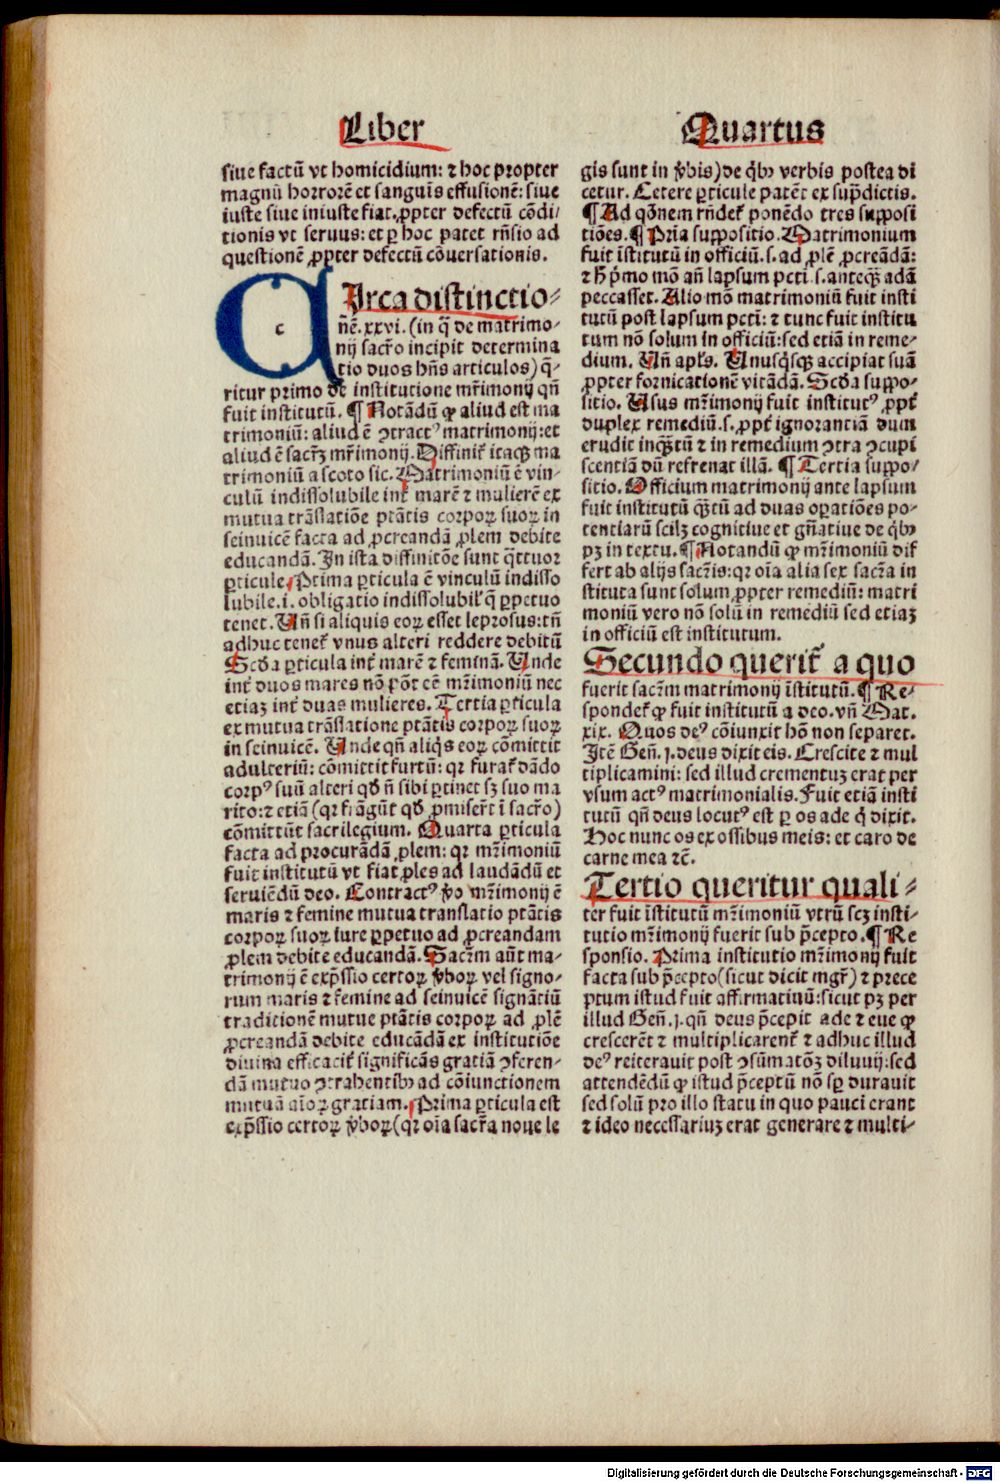 Liber
Quartus
siue factū vt homicidium: ⁊ hoc propter
magnū horrorē et sanguis effusionē: siue
iuste siue iniuste fiat. ꝓpter defectū cōdi/
tionis vt seruus: et ꝑ hoc patet rn̄sio ad
questionē ꝓpter defectū cōuersationis.
c
Irca distinctio⸗
nē. xxvi. (in q̄ de matrimo/
nij sacr̄o incipit determina
tio duos hn̄s articulos) q̄⸗
ritur primo de institutione mr̄imonij qn̄
fuit institutū. ¶ Notādū ꝙ aliud est ma
trimoniū: aliud ē ↄtractꝰ matrimonij: et
aliud ē sacrm̄ mr̄imonij. Diffinit̄ itaqꝫ ma
trimoniū a scoto sic. Matrimoniū ē vin⸗
culū indissolubile int̄ marē ⁊ mulierē ex
mutua trāslatiōe ptātis corpoꝝ suoꝝ in
seinuicē facta ad ꝓcreandā ꝓlem debite
educandā. In ista diffinitōe sunt q̄ttuor
ꝑticule. Prima ꝑticula ē vinculū indisso
lubile. i. obligatio indissolubil̓ q̄ ꝑpetuo
tenet. Vn̄ si aliquis eoꝝ esset leprosus: tn̄
adhuc tenet̄ vnus alteri reddere debitū
Scd̓a ꝑticula int̄ marē ⁊ feminā. Vnde
int̄ duos mares nō pōt eē mr̄imoniū nec
etiaꝫ int̄ duas mulieres. Tertia ꝑticula
ex mutua trāslatione ptātis corpoꝝ suoꝝ
in seinuicē. Vnde qn̄ aliq̄s eoꝝ cōmittit
adulteriū: cōmittit furtū: qꝛ furat̄ dādo
corpꝰ suū alteri qd̓ n̄ sibi ꝑtinet sꝫ suo ma
rito: ⁊ etiā (qꝛ frāgūt qd̓ ꝓmiser̄t ī sacr̄o)
cōmittūt sacrilegium. Quarta ꝑticula
facta ad procurādā ꝓlem: qꝛ mr̄imoniū
fuit institutū vt fiat ꝓles ad laudādū et
seruiēdū deo. Contractꝰ v̓o mr̄imonij ē
maris ⁊ femine mutua translatio ptātis
corpoꝝ suoꝝ iure ꝑpetuo ad ꝓcreandam
ꝓlem debite educandā. Sacrm̄ aūt ma⸗
trimonij ē exp̄ssio certoꝝ v̓boꝝ vel signo⸗
rum maris ⁊ femine ad seinuicē signātiū
traditionē mutue ptātis corpoꝝ ad ꝓlē
ꝓcreandā debite educādā ex institutiōe
diuina efficacit̄ significās gratiā ↄferen⸗
dā mutuo ↄtrahentibꝰ ad cōiunctionem
mutuā aīoꝝ gratiam. Prima ꝑticula est
exp̄ssio certoꝝ v̓boꝝ (qꝛ oīa sacr̄a noue le
gis sunt in v̓bis) de qͥbꝰ verbis postea di
cetur. Cetere ꝑticule patēt ex supͣdictis.
¶ Ad qōnem rn̄det̄ ponēdo tres supposi
tiōes. ¶ Pria suppositio. Matrimonium
fuit institutū in officiū. s. ad ꝓlē ꝓcreādā:
⁊ h̓ pͥmo mō an̄ lapsum pcti. s. anteqꝫ adā
peccasset. Alio mō matrimoniū fuit insti
tutū post lapsum pcti: ⁊ tunc fuit institu
tum nō solum in officiū: sed etiā in reme⸗
dium. Vn̄ apl̓s. Vnusqͥsqꝫ accipiat suā
ꝓpter fornicationē vitādā. Scd̓a suppo⸗
sitio. Vsus mr̄imonij fuit institutꝰ ꝓpt̄
duplex remediū. s. ꝓpt̄ ignorantiā dum
erudit inqͣꝫtū ⁊ in remedium ↄtra ↄcupi
scentiā dū refrenat illā. ¶ Tertia suppo⸗
sitio. Officium matrimonij ante lapsum
fuit institutū qͣꝫtū ad duas oꝑatiōes po⸗
tentiarū scilꝫ cognitiue et gn̄atiue de qͥbꝰ
pꝫ in textu. ¶ Notandū ꝙ mr̄imoniū dif
fert ab alijs sacr̄is: qꝛ oīa alia sex sacr̄a in
stituta sunt solum ꝓpter remediū: matri
moniū vero nō solū in remediū sed etiaꝫ
in officiū est institutum.
Secundo querit̄ a quo
fuerit sacrm̄ matrimonij īstitutū. ¶ Re⸗
spondet̄ ꝙ fuit institutū a deo. vn̄ Mat.
xix. Quos deꝰ cōiunxit hō non separet.
Itē Gen̄. j. deus dixit eis. Crescite ⁊ mul
tiplicamini: sed illud crementuꝫ erat per
vsum actꝰ matrimonialis. Fuit etiā insti
tutū qn̄ deus locutꝰ est ꝑ os ade q̓ dixit.
Hoc nunc os ex ossibus meis: et caro de
carne mea ⁊c̄.
Tertio queritur quali⸗
ter fuit īstitutū mr̄imoniū vtrū scꝫ insti⸗
tutio mr̄imonij fuerit sub p̄cepto. ¶ Re
sponsio. Prima institutio mr̄imonij fuit
facta sub p̄cepto (sicut dicit mgr̄) ⁊ prece
ptum istud fuit affirmatiuū: sicut pꝫ per
illud Gen̄. j. qn̄ deus p̄cepit ade ⁊ eue ꝙ
crescerēt ⁊ multiplicarent̄ ⁊ adhuc illud
deꝰ reiterauit post ↄsūmatōꝫ diluuij: sed
attendēdū ꝙ istud p̄ceptū nō sꝑ durauit
sed solū pro illo statu in quo pauci erant
⁊ ideo necessariuꝫ erat generare ⁊ multi⸗
Digitalisierung gefördert durch die Deutsche Forschungsgemeinschaft - DFG